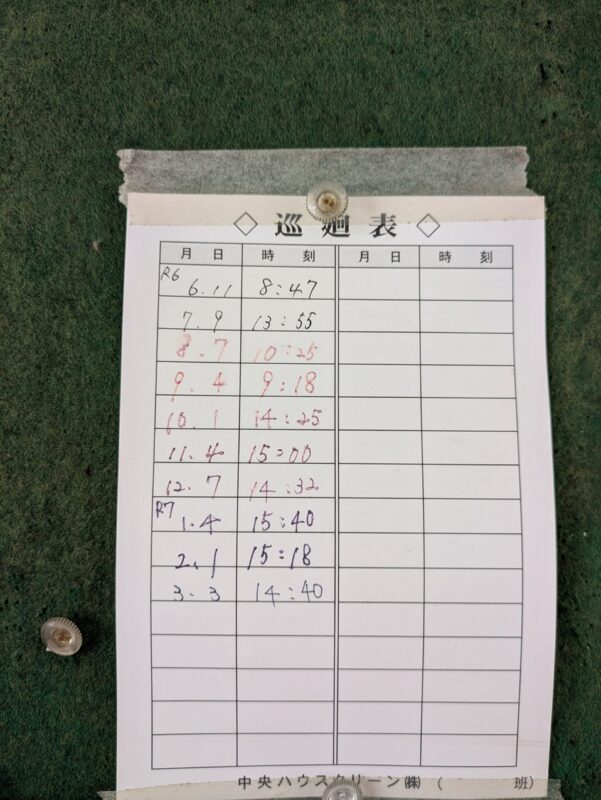 ◇ 巡廻表 ◇
月 日 時 刻 月 日 時 刻
R6 6.11 8:47
7.9 13:55
8.7 10:25
9.4 9:18
10.1 14:25
11.4 15:00
12.7 14:32
R7 1.4 15:40
2.1 15:18
3.3 14:40
中央ハウスクリーン㈱ ( 班)